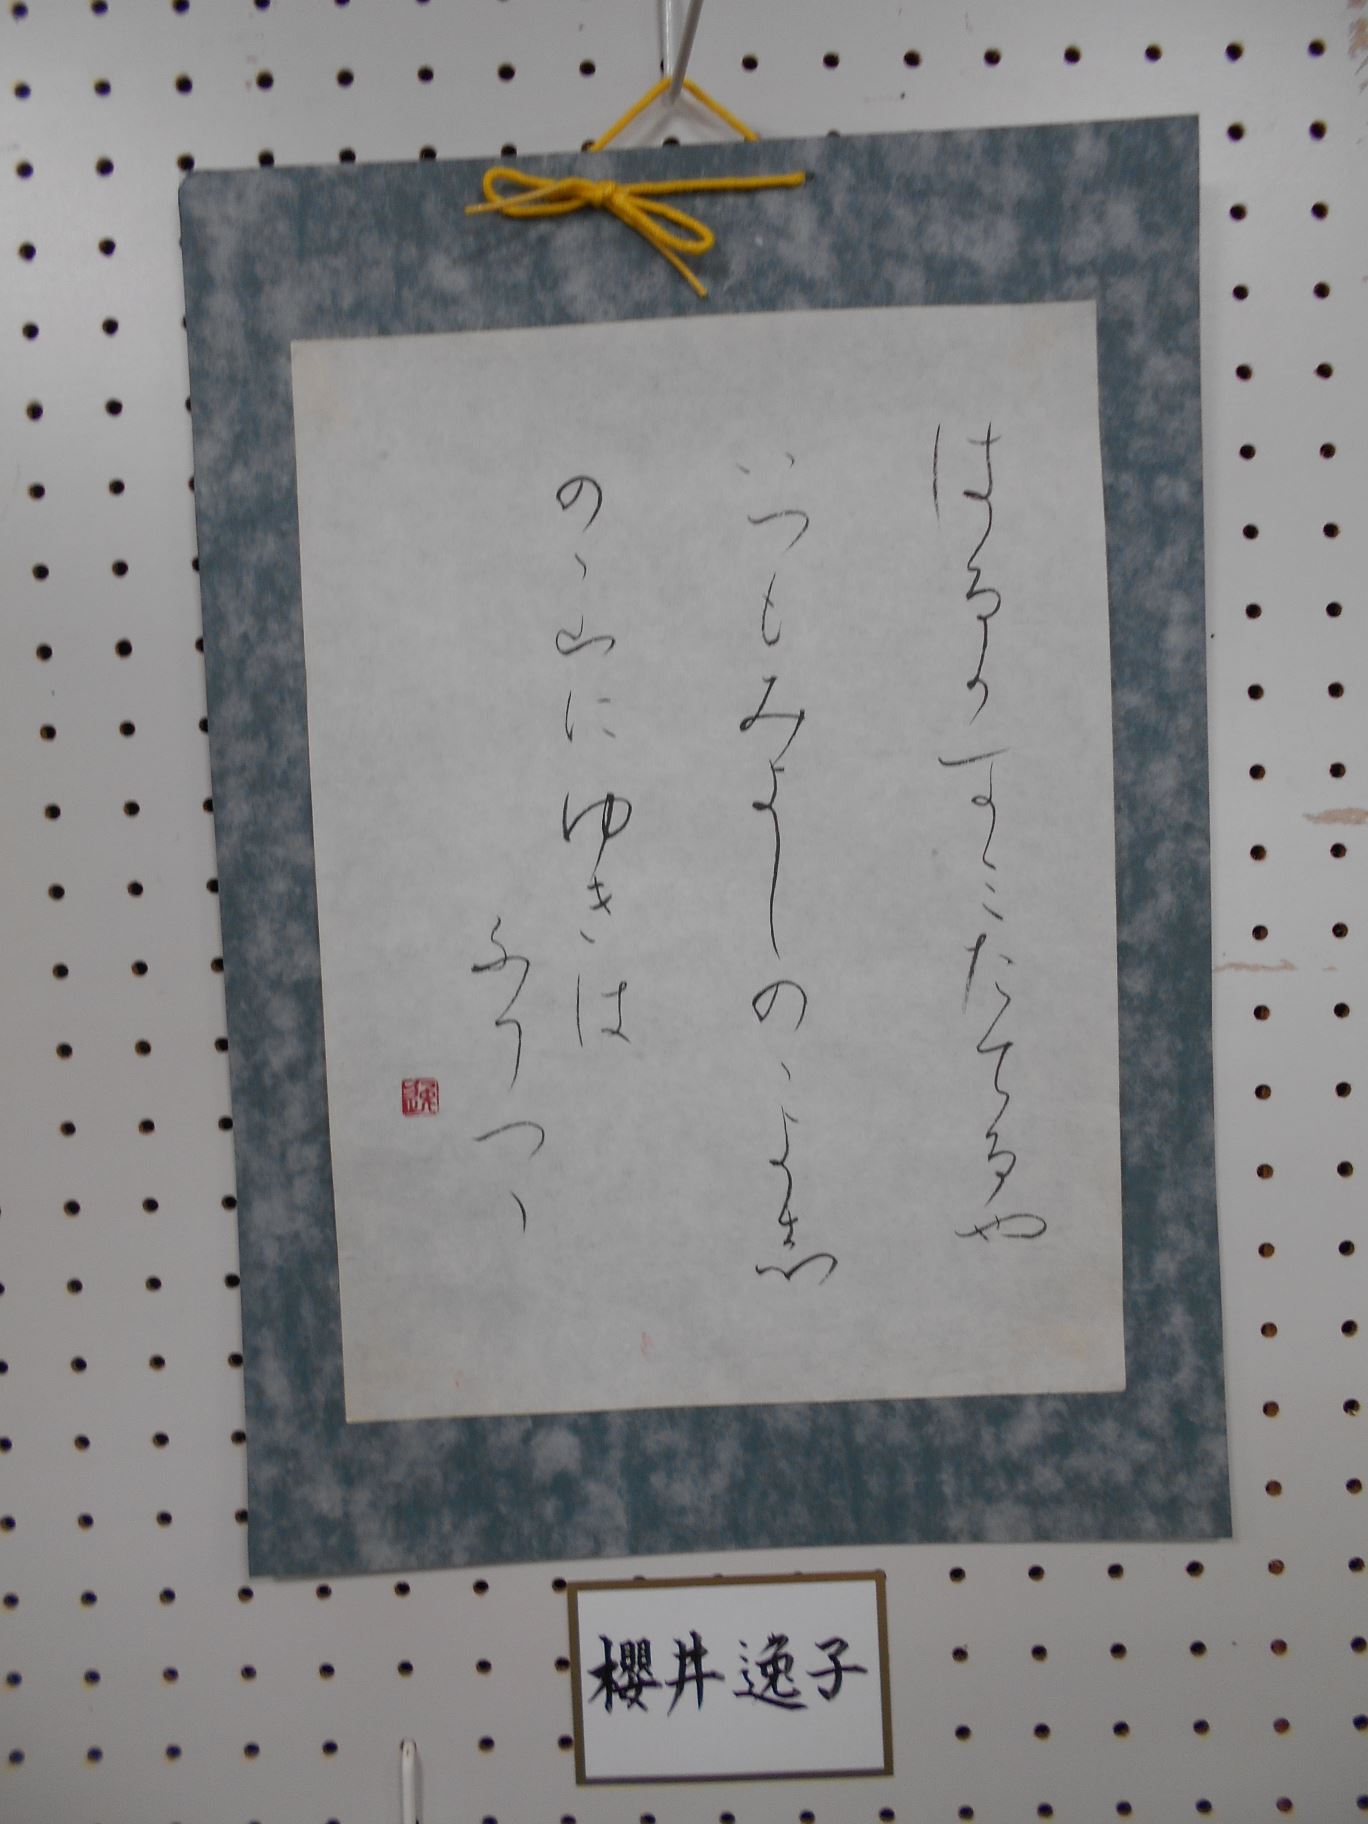 はるかすみたてるや
いつこみよしのゝよし
のゝ山にゆきは
ふりつゝ
逸
櫻井逸子